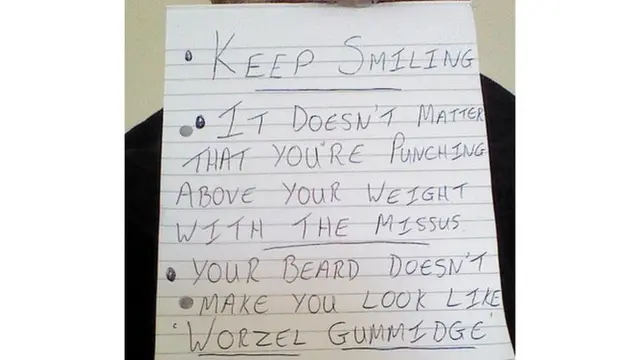 • KEEP SMILING
• IT DOESN'T MATTER
THAT YOU'RE PUNCHING
ABOVE YOUR WEIGHT
WITH THE MISSUS.
• YOUR BEARD DOESN'T
MAKE YOU LOOK LIKE
'WORZEL GUMMIDGE'